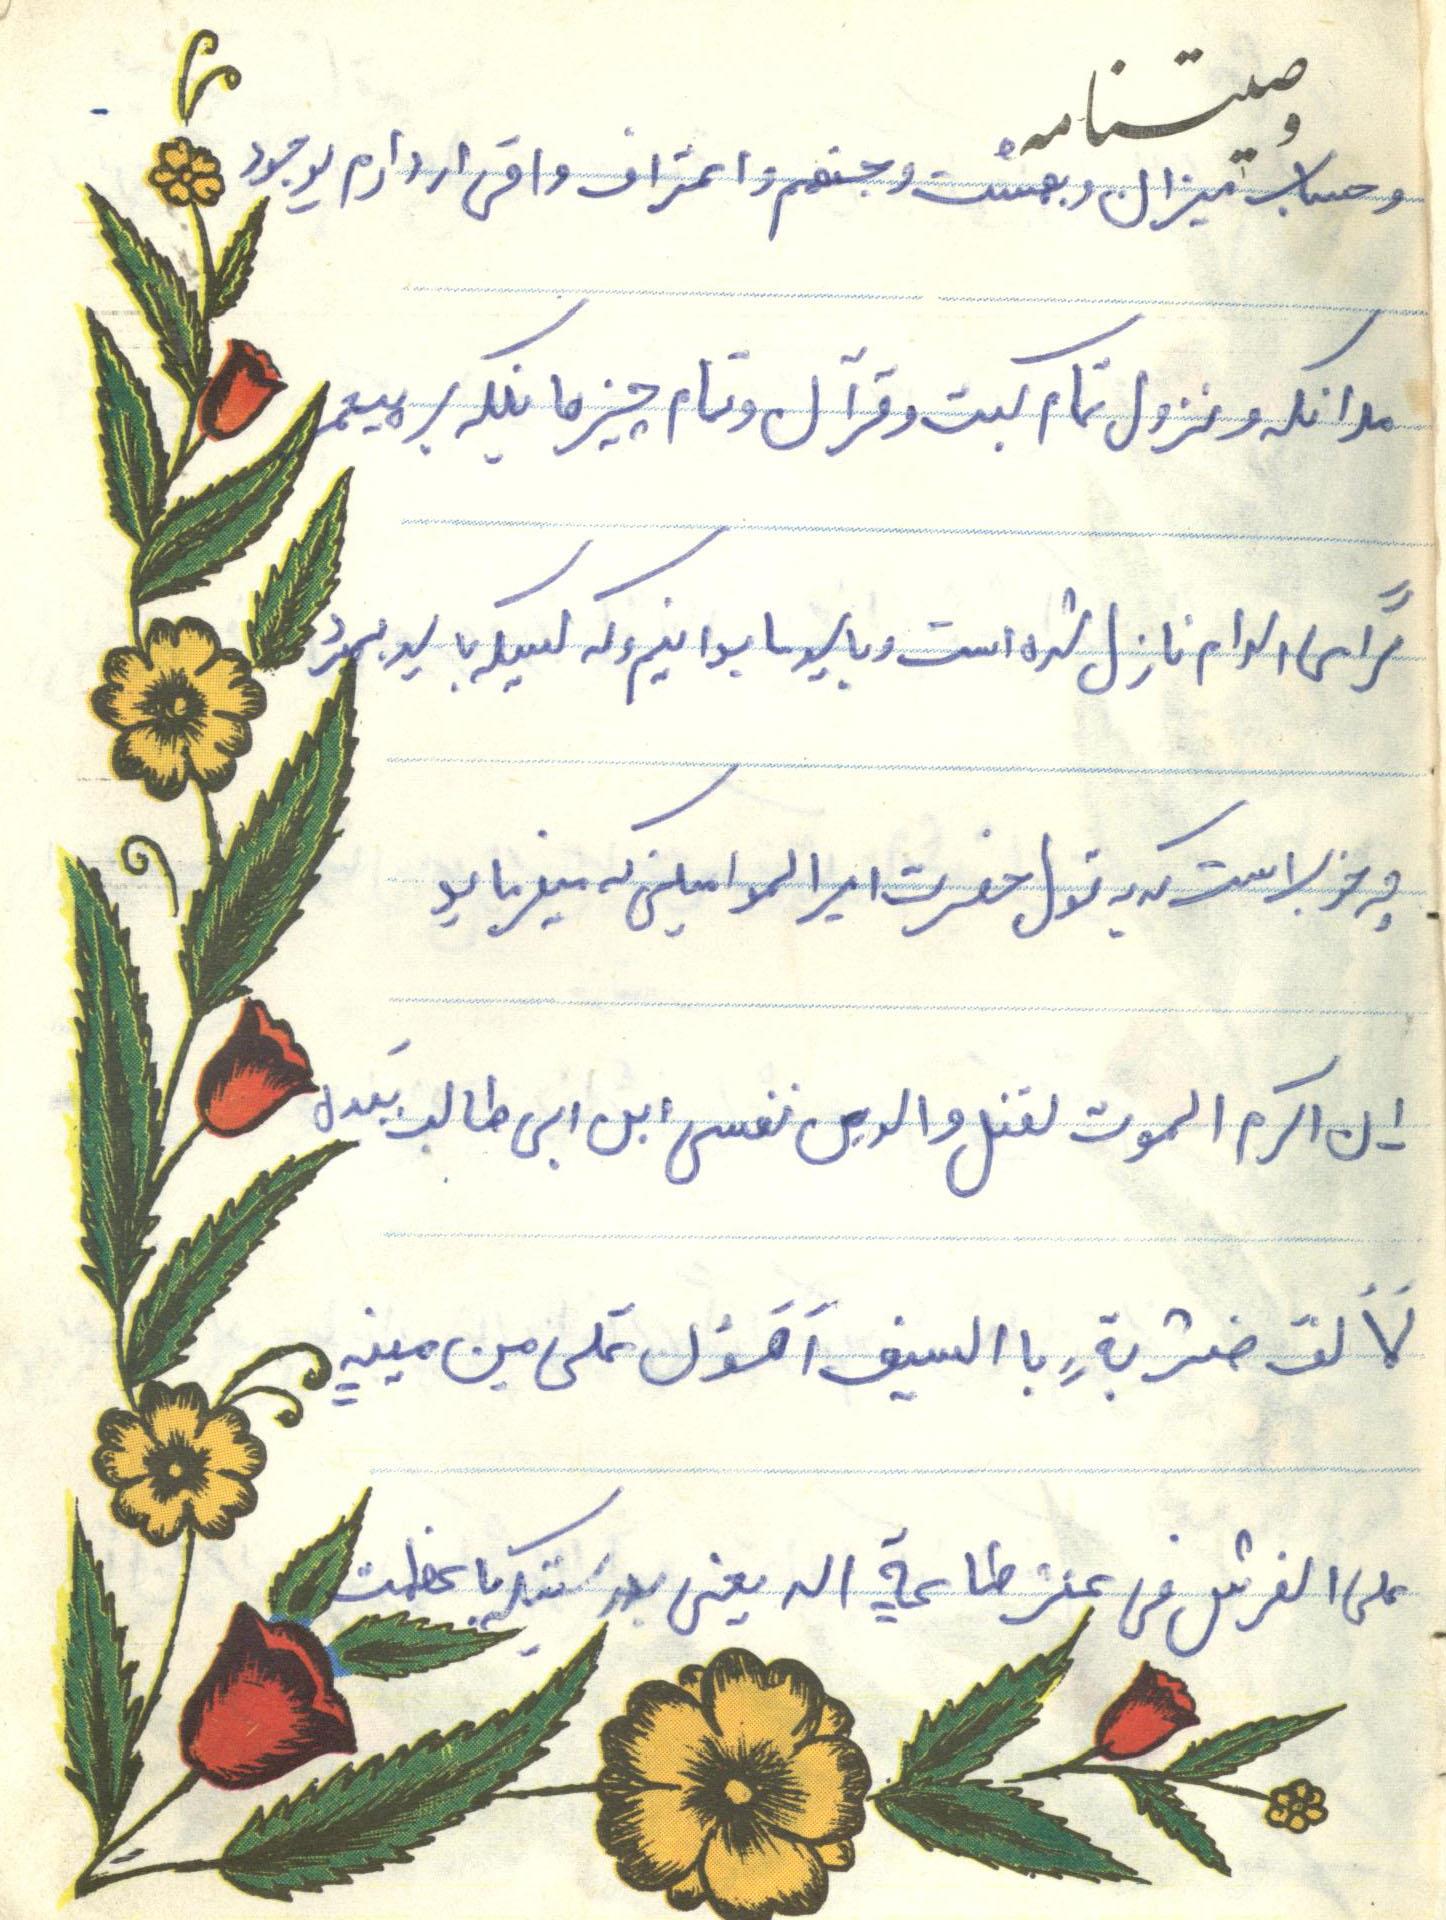 وصیتنامه
و حساب میزان و بهشت و جهنم و اعتراف و اقرار دارم بوجود
ملائکه و نزول تمام کتب و قرآن و تمام چیزهائیکه بر پیغمبر
اکرام نازل شده است و باید ما بدانیم و که باید بمیرد
چه خوب است که به قول حضرت امیرالموامنین که میفرماید
ان اکرم الموت لقتل والدی نفسی ابن ابی طالب بیده
لألف ضربة با السیف اَهوَن علی من میتهٍ
علی الفرش فی غیر طاعةِ اله یعنی با عظمت